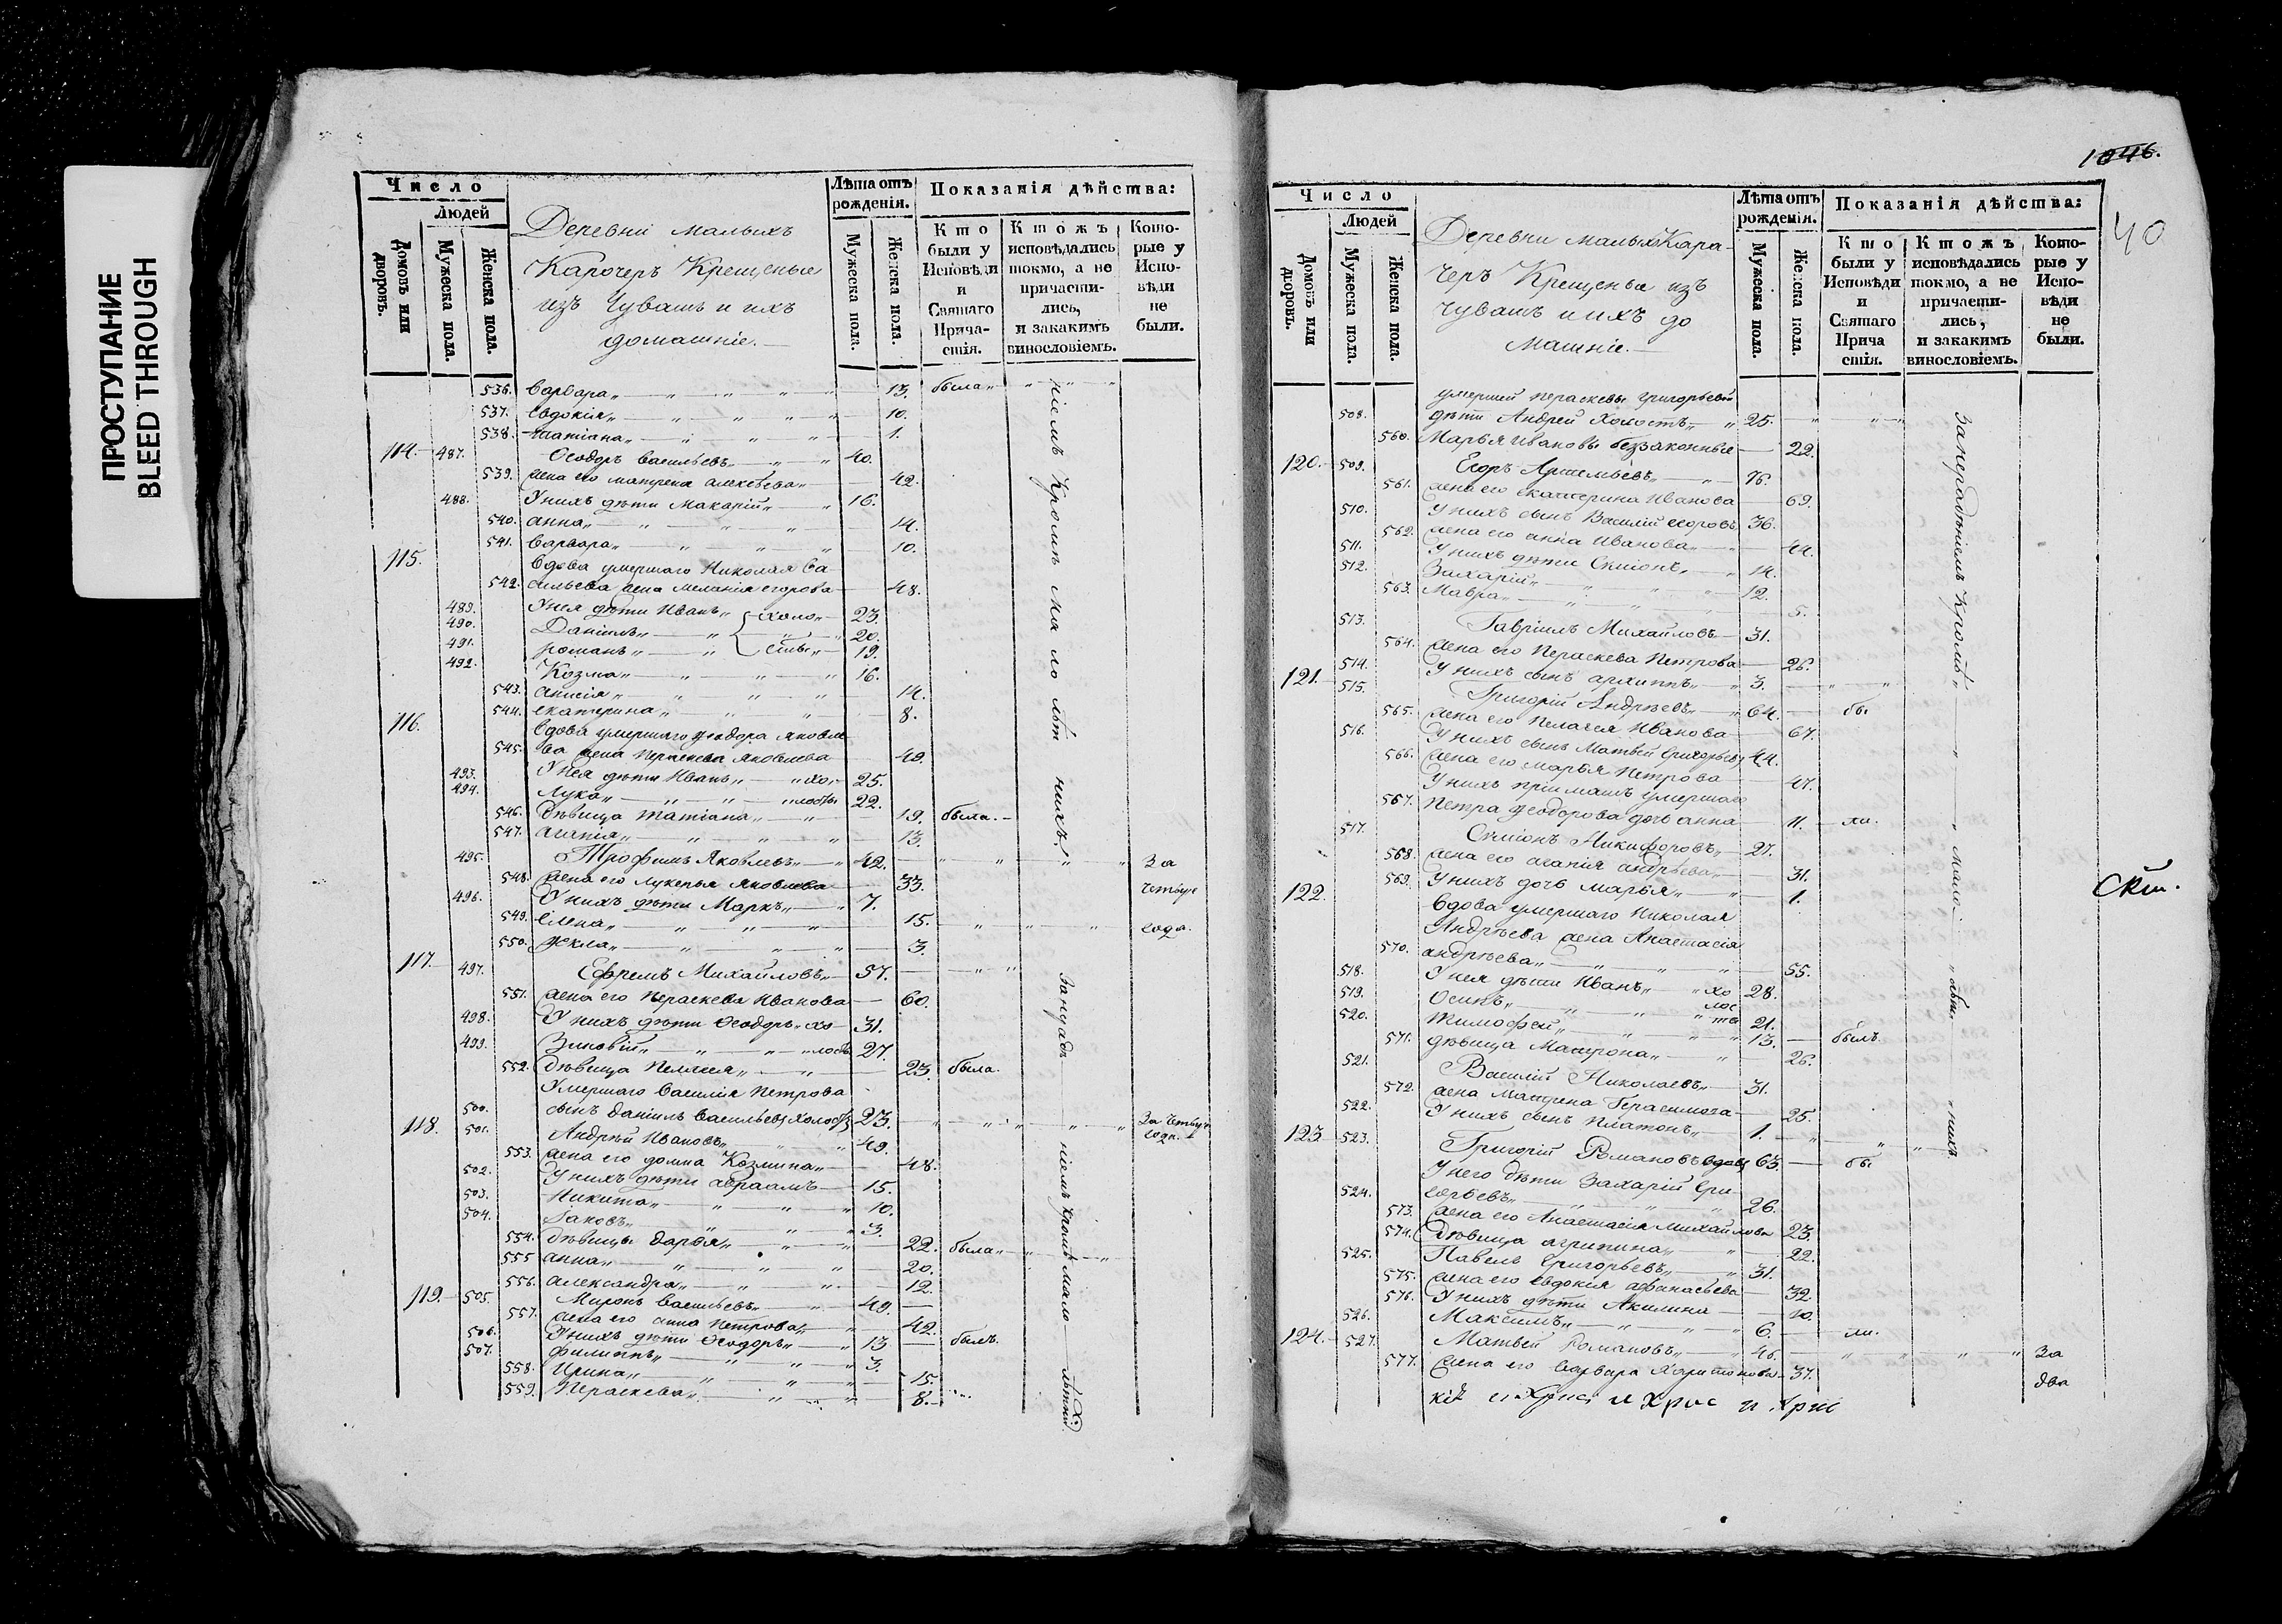 ПРОСТУПАНИЕ
BLEED THROUGH
Число
Людей
Домовъ или дворовъ.
Мужеска пола.
Женска пола.
Деревни малыхъ
Карочеръ Крещеные
изъ Чувашъ и ихъ
домашніе.
Лѣта отъ рожденія.
Мужеска пола.
Женска пола.
Показанія дѣйства:
Кто были у Исповѣди и Святаго Причастія.
Ктожъ исповѣдались токмо, а не причастились, и закакимъ винословіемъ.
Которые у Исповѣди не были.
536. Варвара 13. была
537. Евдокія 10.
538. Татіана 1.
114. 487. Ѳеодоръ Васильевъ 40.
539. жена его Матрена Алексѣева 42.
488. У нихъ дѣти Макарій 16.
540. Анна 14.
541. Варвара 10.
115. Вдова умершаго Николая Ва
542. сильева жена Меланія Егорова 48.
489. У нея дѣти Иванъ холо 23.
490. Даніилъ 20.
491. Романъ стые 19.
492. Козма 16.
543. Анисія 14.
544. Екатерина 8.
116. Вдова умершаго Ѳеодора Яковле
545. ва жена Параскева Яковлева 49.
493. У нея дѣти Иванъ хо 25.
494. Лука лосты 22.
546. дѣвица Татіана 19. была.
547. Агапія 13.
495. Трофимъ Яковлевъ 42. За
548. жена его Лукерья Яковлева 33. четыре
496. У нихъ дѣти Маркъ 7.
549. Елена 15. года.
550. Ѳекла 3.
117. 497. Ефремъ Михайловъ 57.
551. жена его Параскева Иванова 60.
498. У нихъ дѣти Ѳеодоръ хо 31.
499. Зиновій лосты 27.
552. дѣвица Пелагея 23. была.
Умершаго Василія Петрова
500. сынъ Даніилъ Васильевъ холостъ 23. За четыре года.
118. 501. Андрей Ивановъ 49.
553. жена его Домна Козмина 48.
502. У нихъ дѣти Авраамъ 15.
503. Никита 10.
504. Іаковъ 3.
554. дѣвицы Дарья 22. была
555 Анна 20.
556. Александра 12.
119. 505. Миронъ Васильевъ 49.
557. жена его Анна Петрова 42.
506. У нихъ дѣти Ѳеодоръ 13 былъ.
507. Филиппъ 3.
558. Ирина 15.
559. Параскева 8.
ніемъ Кромѣ мало лѣт нихъ.
За нерад ніемъ кромѣ мало лѣтних
1046.
40
Число
Людей
Домовъ или дворовъ.
Мужеска пола.
Женска пола.
Деревни малыхъ Кара-
черъ Крещеные изъ
Чувашъ и ихъ до
машніе.
Лѣта отъ рожденія.
Мужеска пола.
Женска пола.
Показанія дѣйства:
Кто были у Исповѣди и Святаго Причастія.
Ктожъ исповѣдались токмо, а не причастились, и закакимъ винословіемъ.
Которые у Исповѣди не были.
умершей Параскевы Григорьевой
508. дѣти Андрей холостъ 25.
560. Марья Ивановы беззаконные 22.
120. 509. Егоръ Артемьевъ 76.
561. жена его Екатерина Иванова 69.
510. У нихъ сынъ Василій Егоровъ 36.
562. жена его Анна Иванова 44.
511. У нихъ дѣти Симіонъ 14.
512. Захарій 12.
563. Мавра 5.
513. Гавріилъ Михайловъ 31.
564. жена его Параскева Петрова 26.
514. У нихъ сынъ Архиппъ 3.
121. 515. Григорій Андреевъ 64. бы
565. жена его Пелагея Иванова 67.
516. У нихъ сынъ Матвей Григорьевъ 44.
566. жена его Марья Петрова 47.
У нихъ пріимашъ умершаго
567. Петра Ѳеодорова дочь Анна 11. ли.
517. Симіонъ Никифоровъ 27.
568. жена его Агапія Андреева 31.
569. У нихъ дочь Марья 1.
122. Вдова умершаго Николая
Андреева жена Анастасія
570. Андреева 55.
518. У нея дѣти Иванъ хо 28.
519. Осипъ лос ты 21.
520. Тимофей 13. былъ
571. дѣвица Матрона 26.
521. Василій Николаевъ 31.
572. жена Матрена Герасимова 25.
522. У нихъ сынъ Платонъ 1.
123. 523. Григорій Романовъ вдовъ 63. бы
У него дѣти Захарій Гри
524. горьевъ 26.
573. жена его Анастасія Михайлова 23.
574. дѣвица Агрипина 22.
525. Павелъ Григорьевъ 31.
575. жена его Евдокія Афанасьева 32.
576. У нихъ дѣти Акилина 10.
526. Максимъ 6. ли.
124. 527. Матвей Романовъ 46. За
577. жена его Варвара Харитонова 37. два
За нерадѣніемъ кромѣ мало лѣт нихъ.